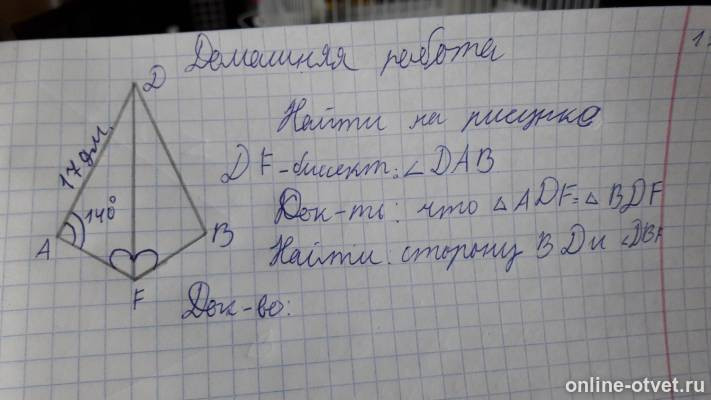 Домашняя работа
1.
Найти на рисунке
DF-биссект: ∠DAB
Док-ть: что △ADF=△BDF
Найти: сторону BD и ∠DBF
Док-во:
D
17 дм.
140°
A
B
F
online-otvet.ru